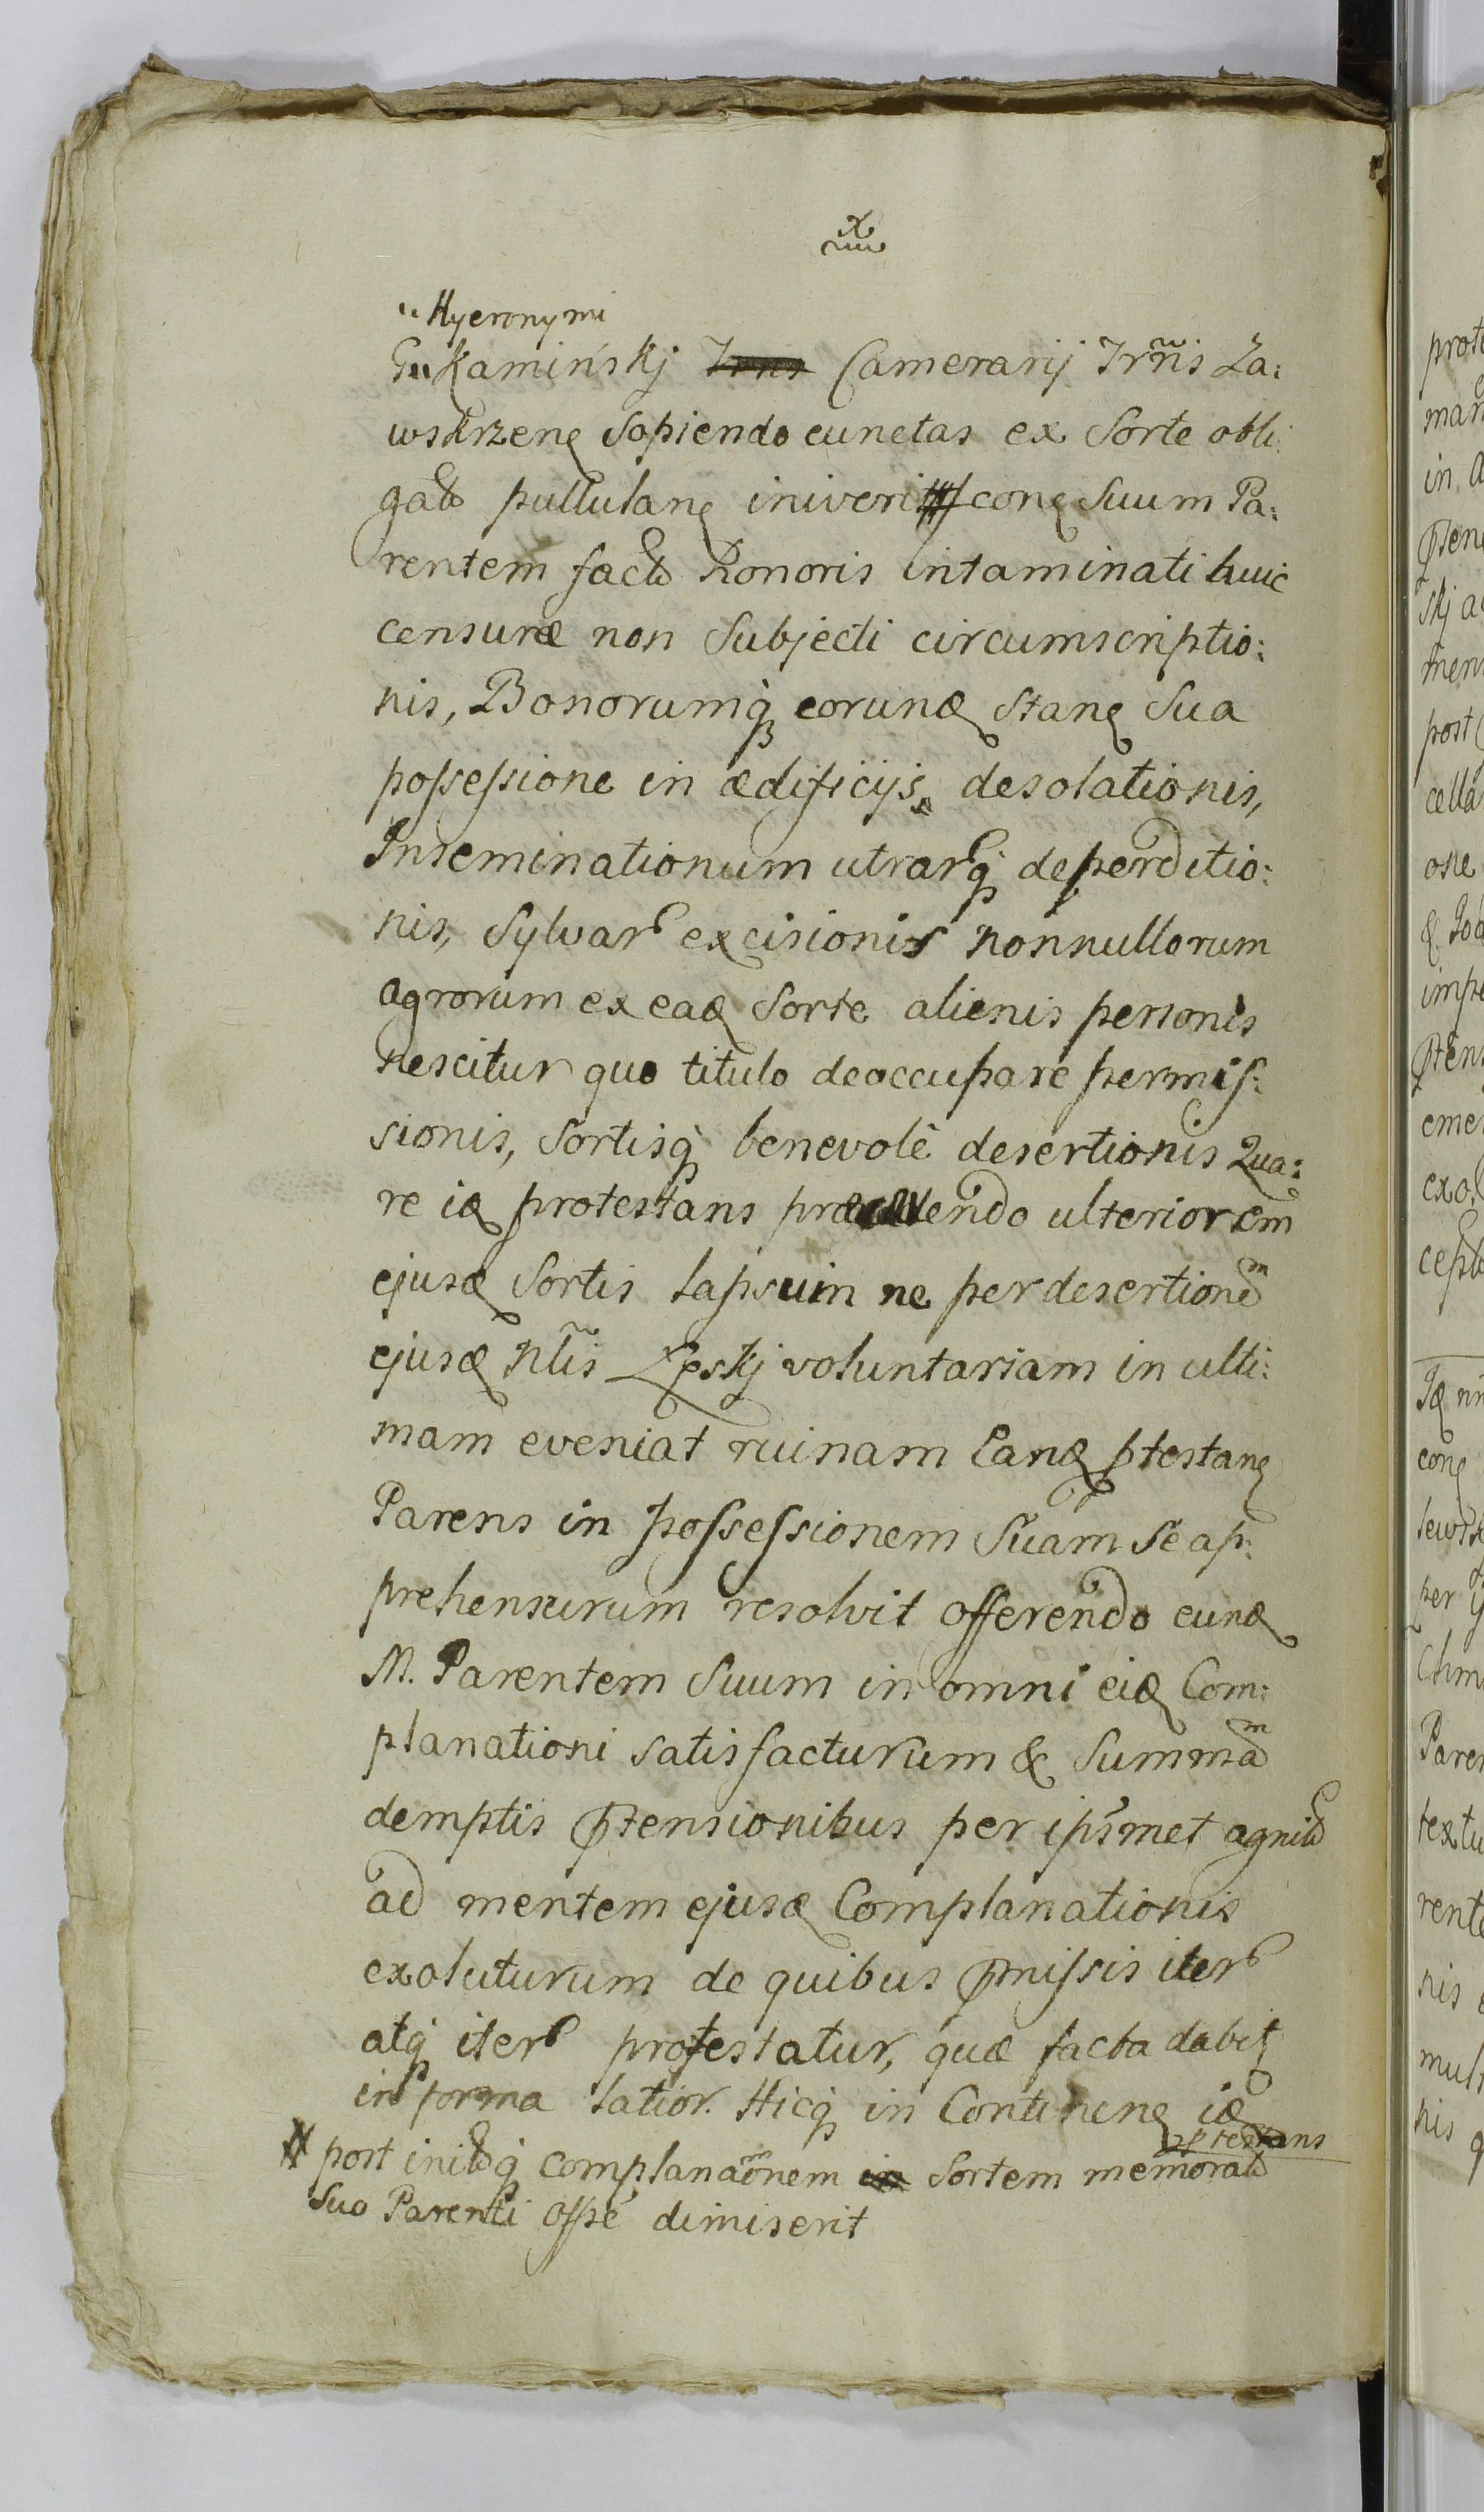 x
Hyeronymi
Kamińskj Camerarij Trñis Za:
wskrzenę Sopiendo cunctas ex Sorte obli:
gato pullulanę iniveri conę Suum Pa:
rentem facto Honoris intaminati huic
censuræ non Subjecti circumscriptio:
nis, Bonorumq eorunđ Stanę Sua
possessione in ædificijs desolationis,
Inseminationum utrarq deperditio:
nis, Sylvar excisionis nonnullorum
agrorum ex eađ Sorte alienis personis
nescitur quo titulo deoccupare permis:
sionis, Sortisq benevolè desertionis Qua:
re iđ protestans præcavendo ulteriorem
ejusđ Sortis lapsum ne per desertionem
ejusđ Nlis Łęskj voluntariam in ulti:
mam eveniat ruinam Eanđ ptestanę
Parens in possessionem Suam Se ap:
prehensurum resolvit offerendo eunđ
M. Parentem Suum in omni eiđ Com:
planationi satisfacturum & Summam
demptis ptensionibus per ipsmet agnito
ad mentem ejusđ Complanationis
exoluturum de quibus pmissis iter
atq iter protestatur, quæ facta dabit
in forma latior. Hicq in Continenę iđ
ptestans
post initoq complanaõnem Sortem memorato
Suo Parenti osse dimiserit